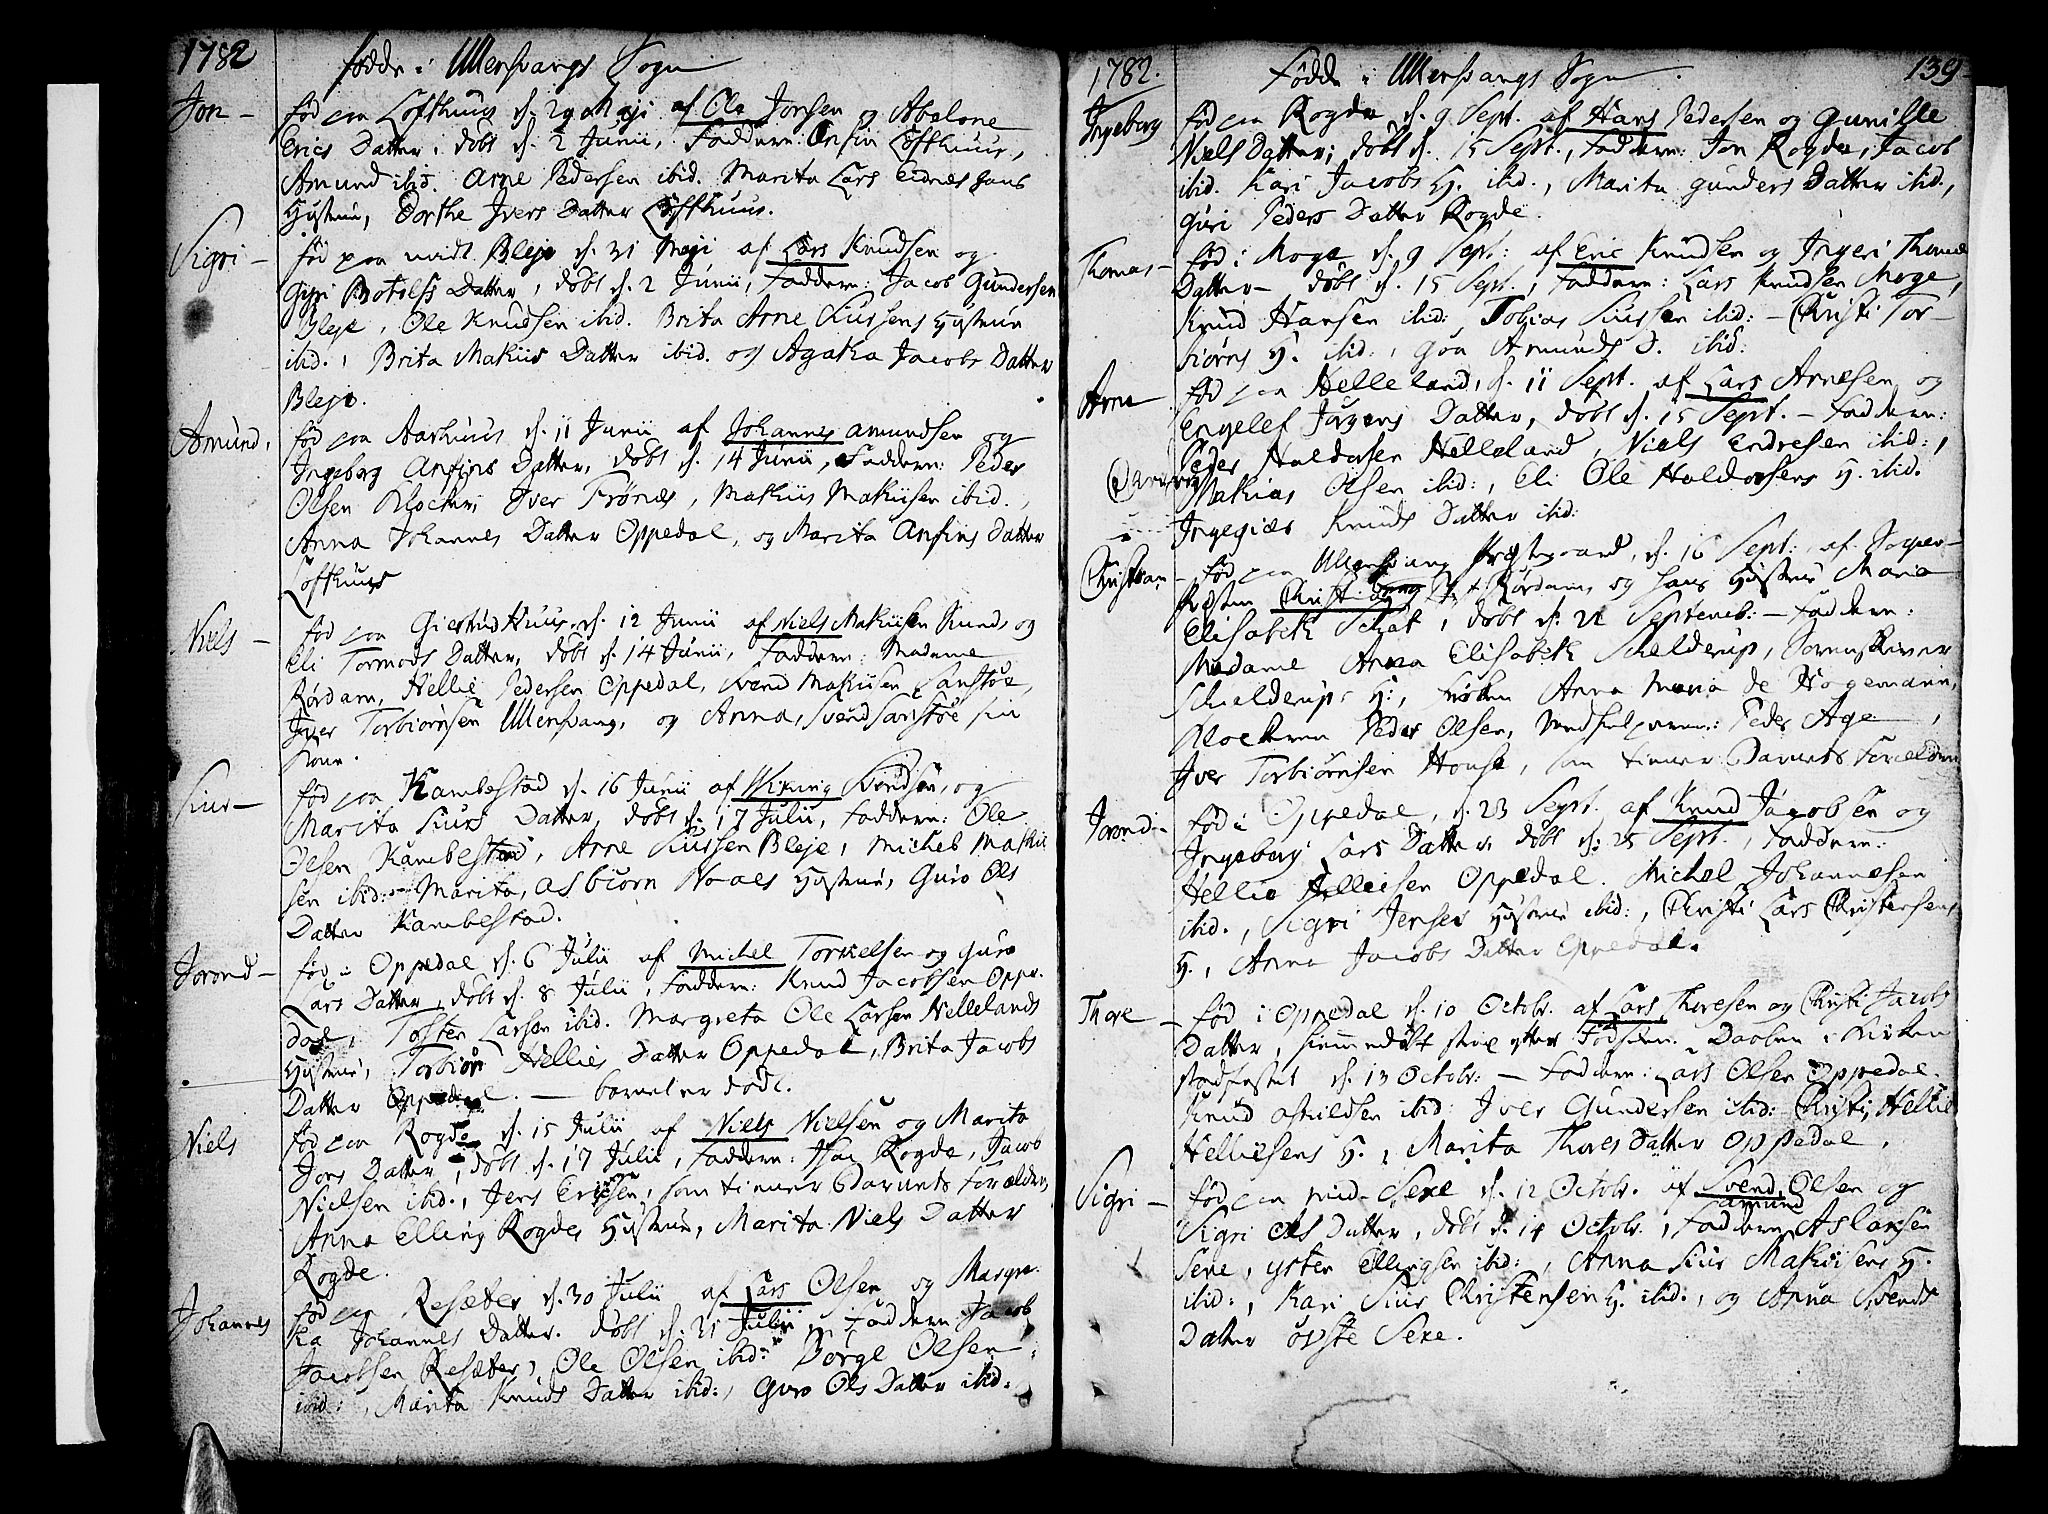 1782
Fødde i Ullensvangs Sogn
Jon —
fød paa Lofthuus d. 29 Maji af Ola Jonsen og Abelone
Erics Datter, døbt d. 2 Junii, Faddere: Anfin Lofthuus,
Amund ibid. Arne Pedersen ibid. Marita Lars Eidnæs hans
Hustrue, Dorthe Ivers Datter Lofthuus.
Sigri —
fød paa midt Bleje d. 31 Maji af Lars Knudsen og
Gyri Botolfs Datter, døbt d. 2 Junii, Faddere: Jacob Gundersen
Bleje, Ole Knudsen ibid. Brita Arne Siursens Hustrue
ibid., Brita Makiis Datter ibid. og Agata Jacobs Datter
Bleje.
Amund,
fød paa Aarhuus d. 11 Junii af Johannes Amundsen og
Ingeborg Anfins Datter, døbt d. 14 Junii, Faddere: Peder
Olsen Klocker, Iver Frønæs, Makiis Makiisen ibid.,
Anna Johannes Datter Oppedal, og Marita Anfins Datter
Lofthuus
Niels —
fød paa Huus, d. 12 Junii af Niels Makiisen Kunds og
Eli Tormods Datter, døbt d. 14 Junii, Faddere: Madame
Rørdam, Hellie Pedersen Oppedal, Svend Makiisen Sanstøe,
Iver Torbiørnsen Ullensvang, og Anna, Svend Sanstøe sin
Kone.
Siur —
fød paa Kambestad d. 16 Junii af Wiking Svendsen, og
Marita Siurs Datter, døbt d. 17 Julii, Faddere: Ole
Olsen Kambestad, Arne Siursen Bleje, Michel Makii
sen ibid: Marita, Asbiørn Noaes Hustrue, Guro Ols
Datter Kambestad.
Jorond —
fød i Oppedal d. 6 Julii af Michel Torkelsen og Guro
Lars Datter, døbt d. 8 Julii, Faddere: Knud Jacobsen Oppe-
dal, Torsten Larsen ibid. Margreta Ole Larsen Hellelands
Hustrue, Torbiør Hellies Datter Oppedal, Brita Jacobs
Datter Oppedal. — barnet er død.
Niels
fød paa Rogde d. 15 Julii af Niels Nielsen og Marita
Jons Datter, døbt d. 17 Julii, Faddere: Isac Rogde, Jacob
Nielsen ibid., Jens Ericsen, som tiener Barnets Forældre,
Anna Elling Rogdes Hustrue, Marita Niels Datter
Rogde.
Johannes
fød paa Resæter d. 30 Julii af Lars Olsen og Margre-
ta Johannes Datter. døbt d. 31 Julii, Faddere: Jacob
Jacobsen Resæter, Ole Olsen ibid: Børge Olsen
ibid:, Marita Knuds Datter ibid:, Guro Ols Datter ibid:
1782.
Fødde i Ullensvangs Sogn.
139
Ingeborg
fød paa Rogde d. 9 Sept. af Hans Pedersen og Gunille
Niels Datter; døbt d. 15 Sept., Faddere: Jon Rogde, Jacob
ibid. Kari Jacobs H. ibid., Marita Gunders Datter ibid.,
Guri Peders Datter Rogde.
Thomas —
fød i Moge d. 9 Sept: af Eric Knudsen og Ingeri Thomæ
Datter — døbt d. 15 Sept., Faddere: Lars Knudsen Moge,
Knud Hansen ibid:, Tobias Siursen ibid: — Christi Tor-
biørns H. ibid:, Goa Amunds D. ibid:
Arne —
fød paa Helleland, d. 11 Sept. af Lars Arnesen og
Engelef Jørgens Datter, døbt d. 15 Sept. — Faddere:
Peder Haldorsen Helleland, Niels Endresen ibid:,
Makias Olsen ibid:, Eli Ole Haldorsens H. ibid.
Ingegiær Knuds Datter ibid:
Christian —
fød paa Ullensvang Præstegaard, d. 16 Sept:, af Sogne-
Præsten Christ: Rørdam, og hans Hustrue Maria
Elisabeth Schat, døbt d. 22 Septemb: — Faddere:
Madame Anna Elisabeth Schelderup, Sorenskriver
Schielderups H:, Frøken Anna Maria de Hogemann,
Klockeren Peder Olsen, Peder Age,
Iver Torbiørnsen House, som tiener Barnets Forældre
Jorond —
fød i Oppedal, d. 23 Sept. af Knud Jacobsen og
Ingeborg Lars Datter døbt d: 25 Sept., Faddere:
Hellie Helliesen Oppedal. Michel Johannesen
ibid., Sigri Jenses Hustrue ibid:, Christi Lars Christensens
H., Anna Jacobs Datter Oppedal.
Thore —
fød i Oppedal d. 10 Octobr. af Lars Thoresen og Christi Jacobs
Datter, hiemmedøbt strax efter Fødselen. Daaben i Kirken
stadfæstet d. 13 Octobr: — Faddere: Lars Olsen Oppedal.
Knud Askildsen ibid: Iver Gundersen ibid: Christi Hellie
Helliesens H., Marita Thores Datter Oppedal.
Sigri —
fød paa mid- Sexe d. 12 Octobr. af Svend Olsen og
Sigri Ols Datter, døbt d. 14 Octobr., Faddere: Amund Aslaksen
Sexe, Ellingsen ibid:, Anna Siur Makiisens H.
ibid:, Kari Siur Christensen H. ibid:, og Anna Svends
Datter øvste Sexe.